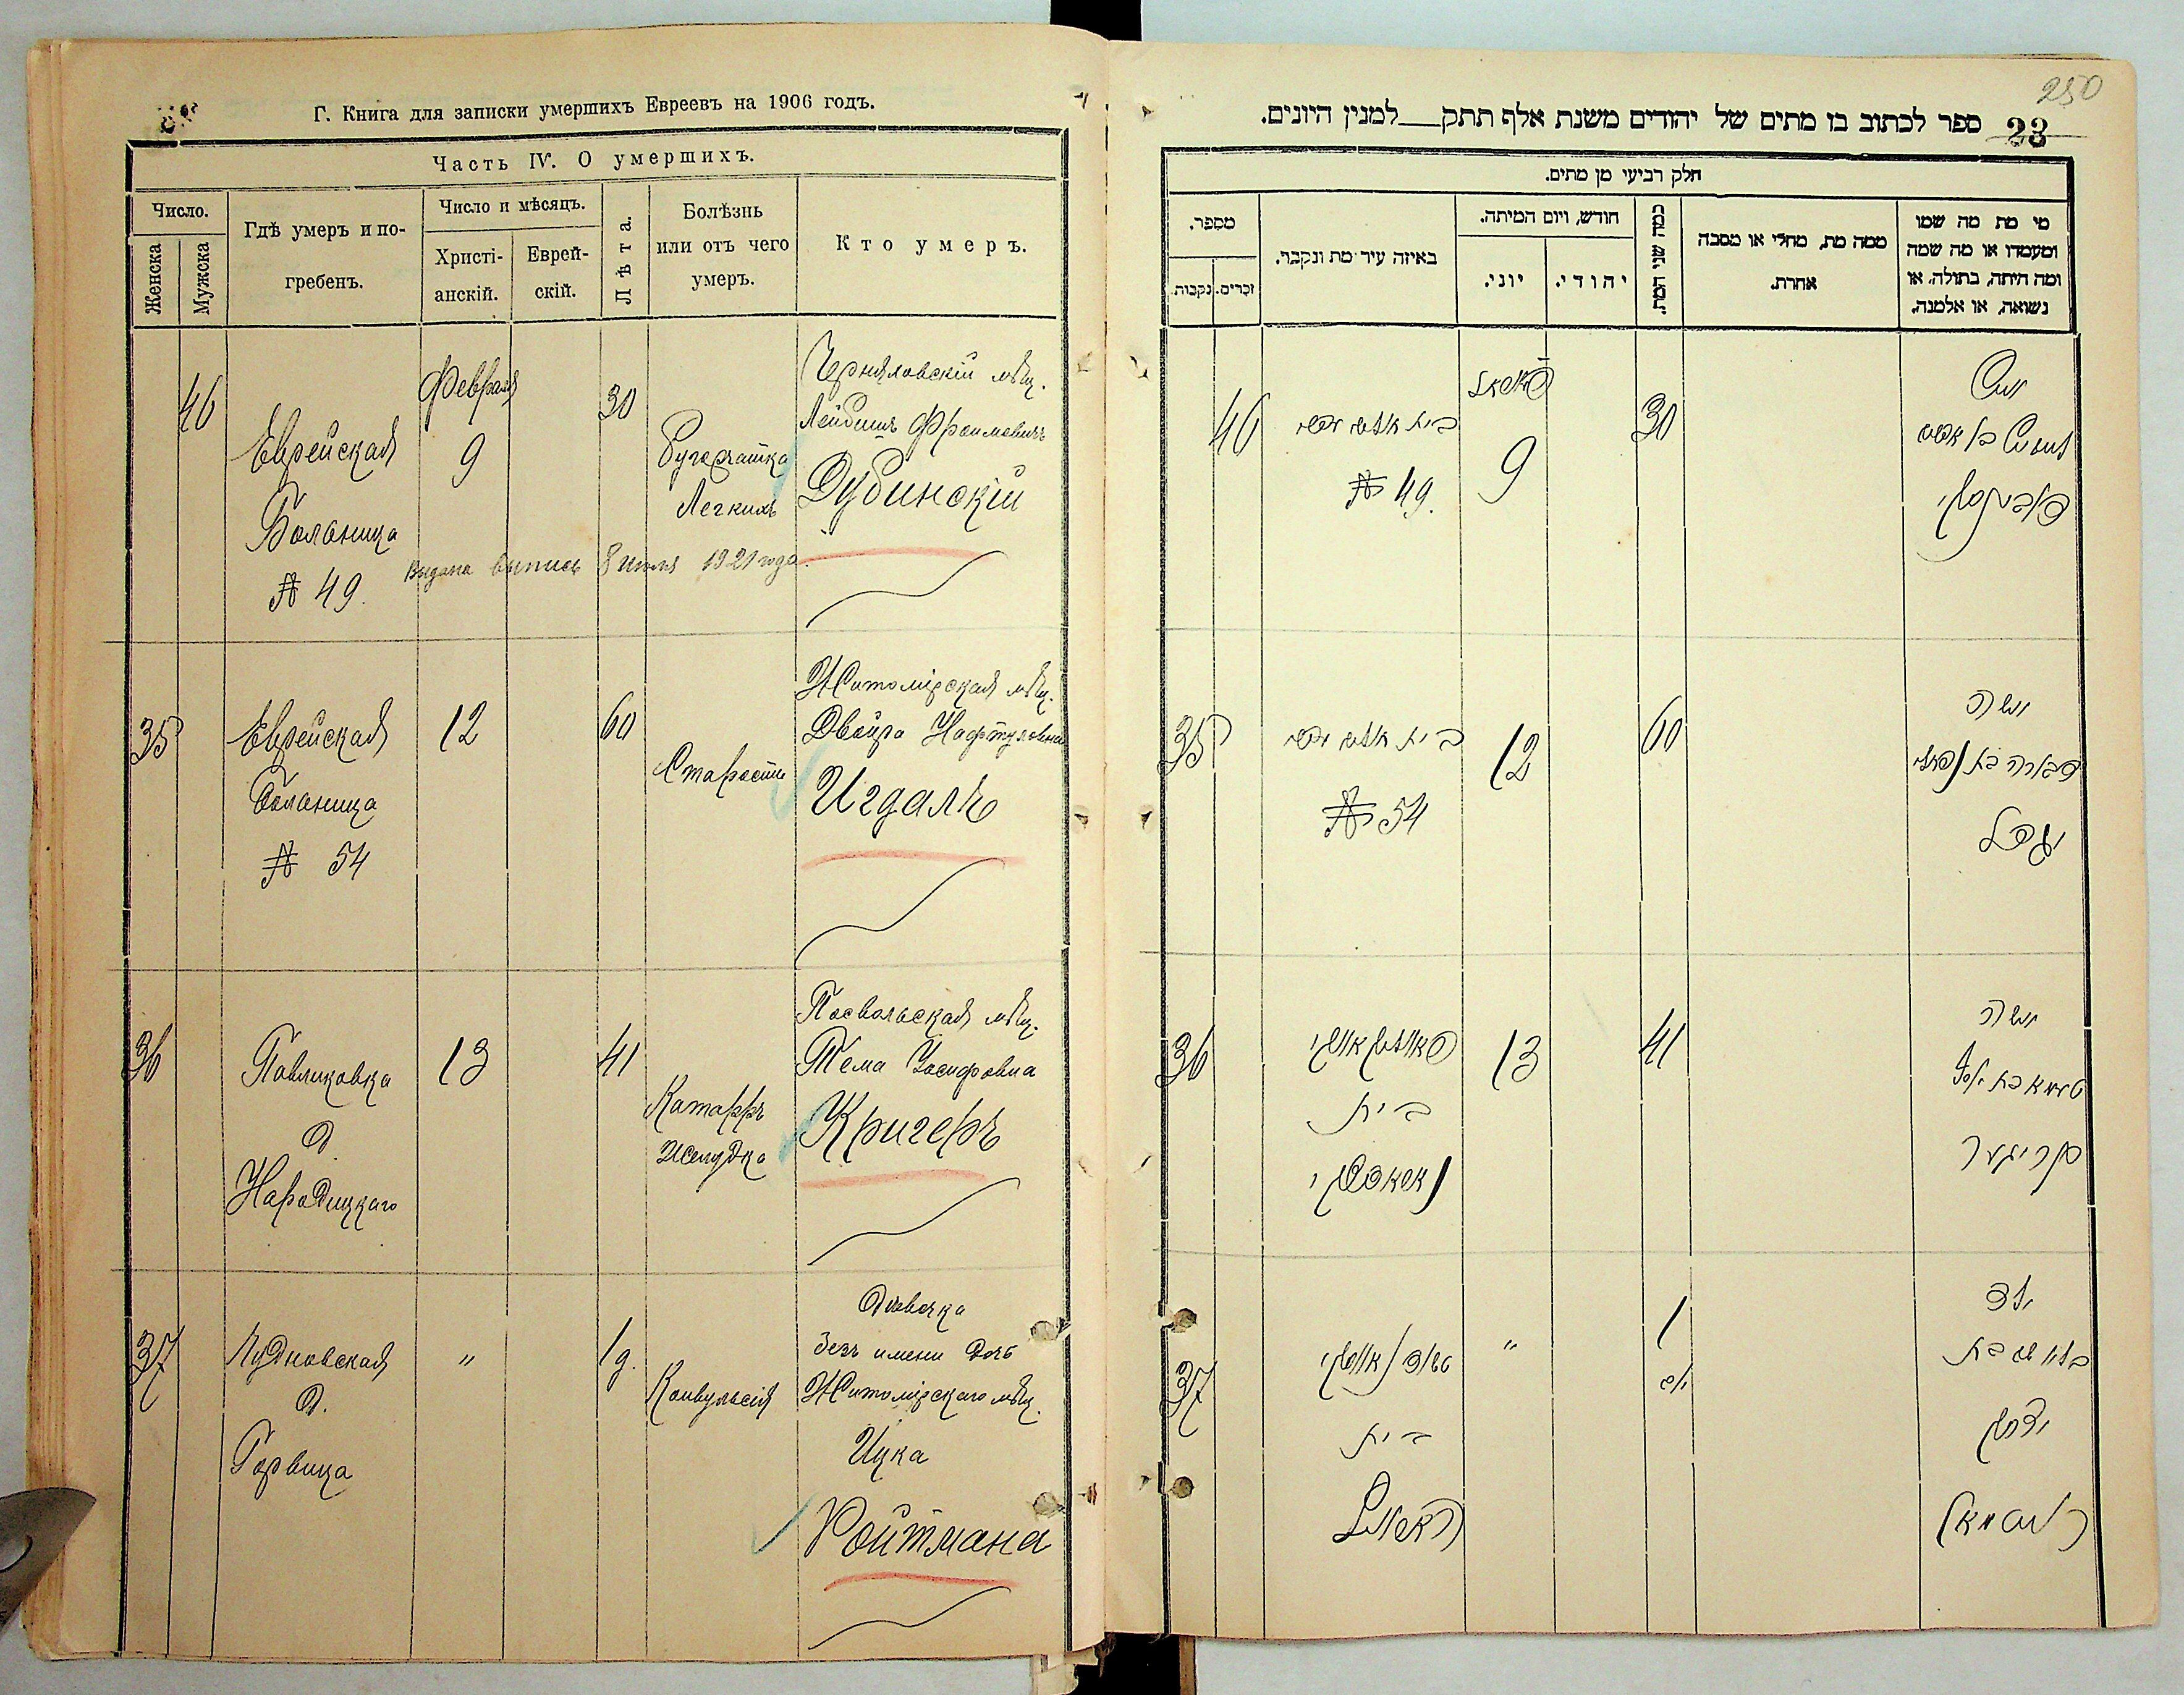 Г. Книга для записки умершихъ Евреевъ на 1906 годъ.
Часть IV. О умершихъ.
Число.
Женска
Мужска
Гдѣ умеръ и по-
гребенъ.
Число и мѣсяцъ.
Христі-
анскій.
Еврей-
скій.
Лѣта.
Болѣзнь
или отъ чего
умеръ.
Кто умеръ.
46
Еврейская
Больница
№ 49.
Февраля
9
30
Бугорчатка
Легкихъ
мѣщ.
Лейбишъ Фроимовичъ
Дубинскій
Выдана выпись 8 июля 1921 года.
35
Еврейская
Больница
№ 54
12
60
Старость
Житомірская мѣщ.
Двойра Нафтуловна
Игдалъ
36
Павликовка
д.
Народицкаго
13
41
Катарръ
Желудка
Посвольская мѣщ.
Тема Іосифовна
Кригеръ
37
Чудновская
д.
Горвица
"
1 д.
Конвульсія
Дѣвочка
безъ имени дочь
Житомірскаго мѣщ.
Ицка
Ройтмана
250
23
ספר לכתוב בו מתים של יהודים משנת אלף תתק למנין היונים.
חלק רביעי מן מתים.
מספר.
זכרים.
נקבות.
באיזה עיר מת ונקבר.
חודש, ויום המיתה.
יוני.
יהודי.
כמה שני המת.
ממה מת, מחלי או מסבה
אחרת.
מי מת מה שמו
ומעמדו או מה שמה
ומה היתה, בתולה, או
נשואה, או אלמנה.
46
№ 49.
9
30
איש
דובינסקי
35
№ 54
12
60
אשה
דבורה בת נפתלי
יגדל
36
בית
13
41
אשה
טעמא בת יוסף
קריגער
37
בית
"
1
יום
ילד
בלי שם בת
יצחק
רויטמאן